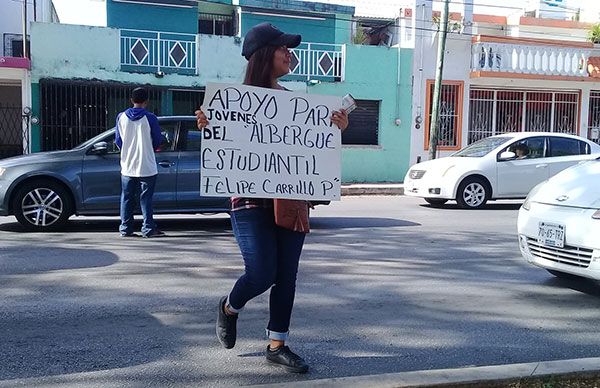 APOYO PARA
JOVENES
DEL "ALBERGUE
ESTUDIANTIL
FELIPE CARRILLO P"